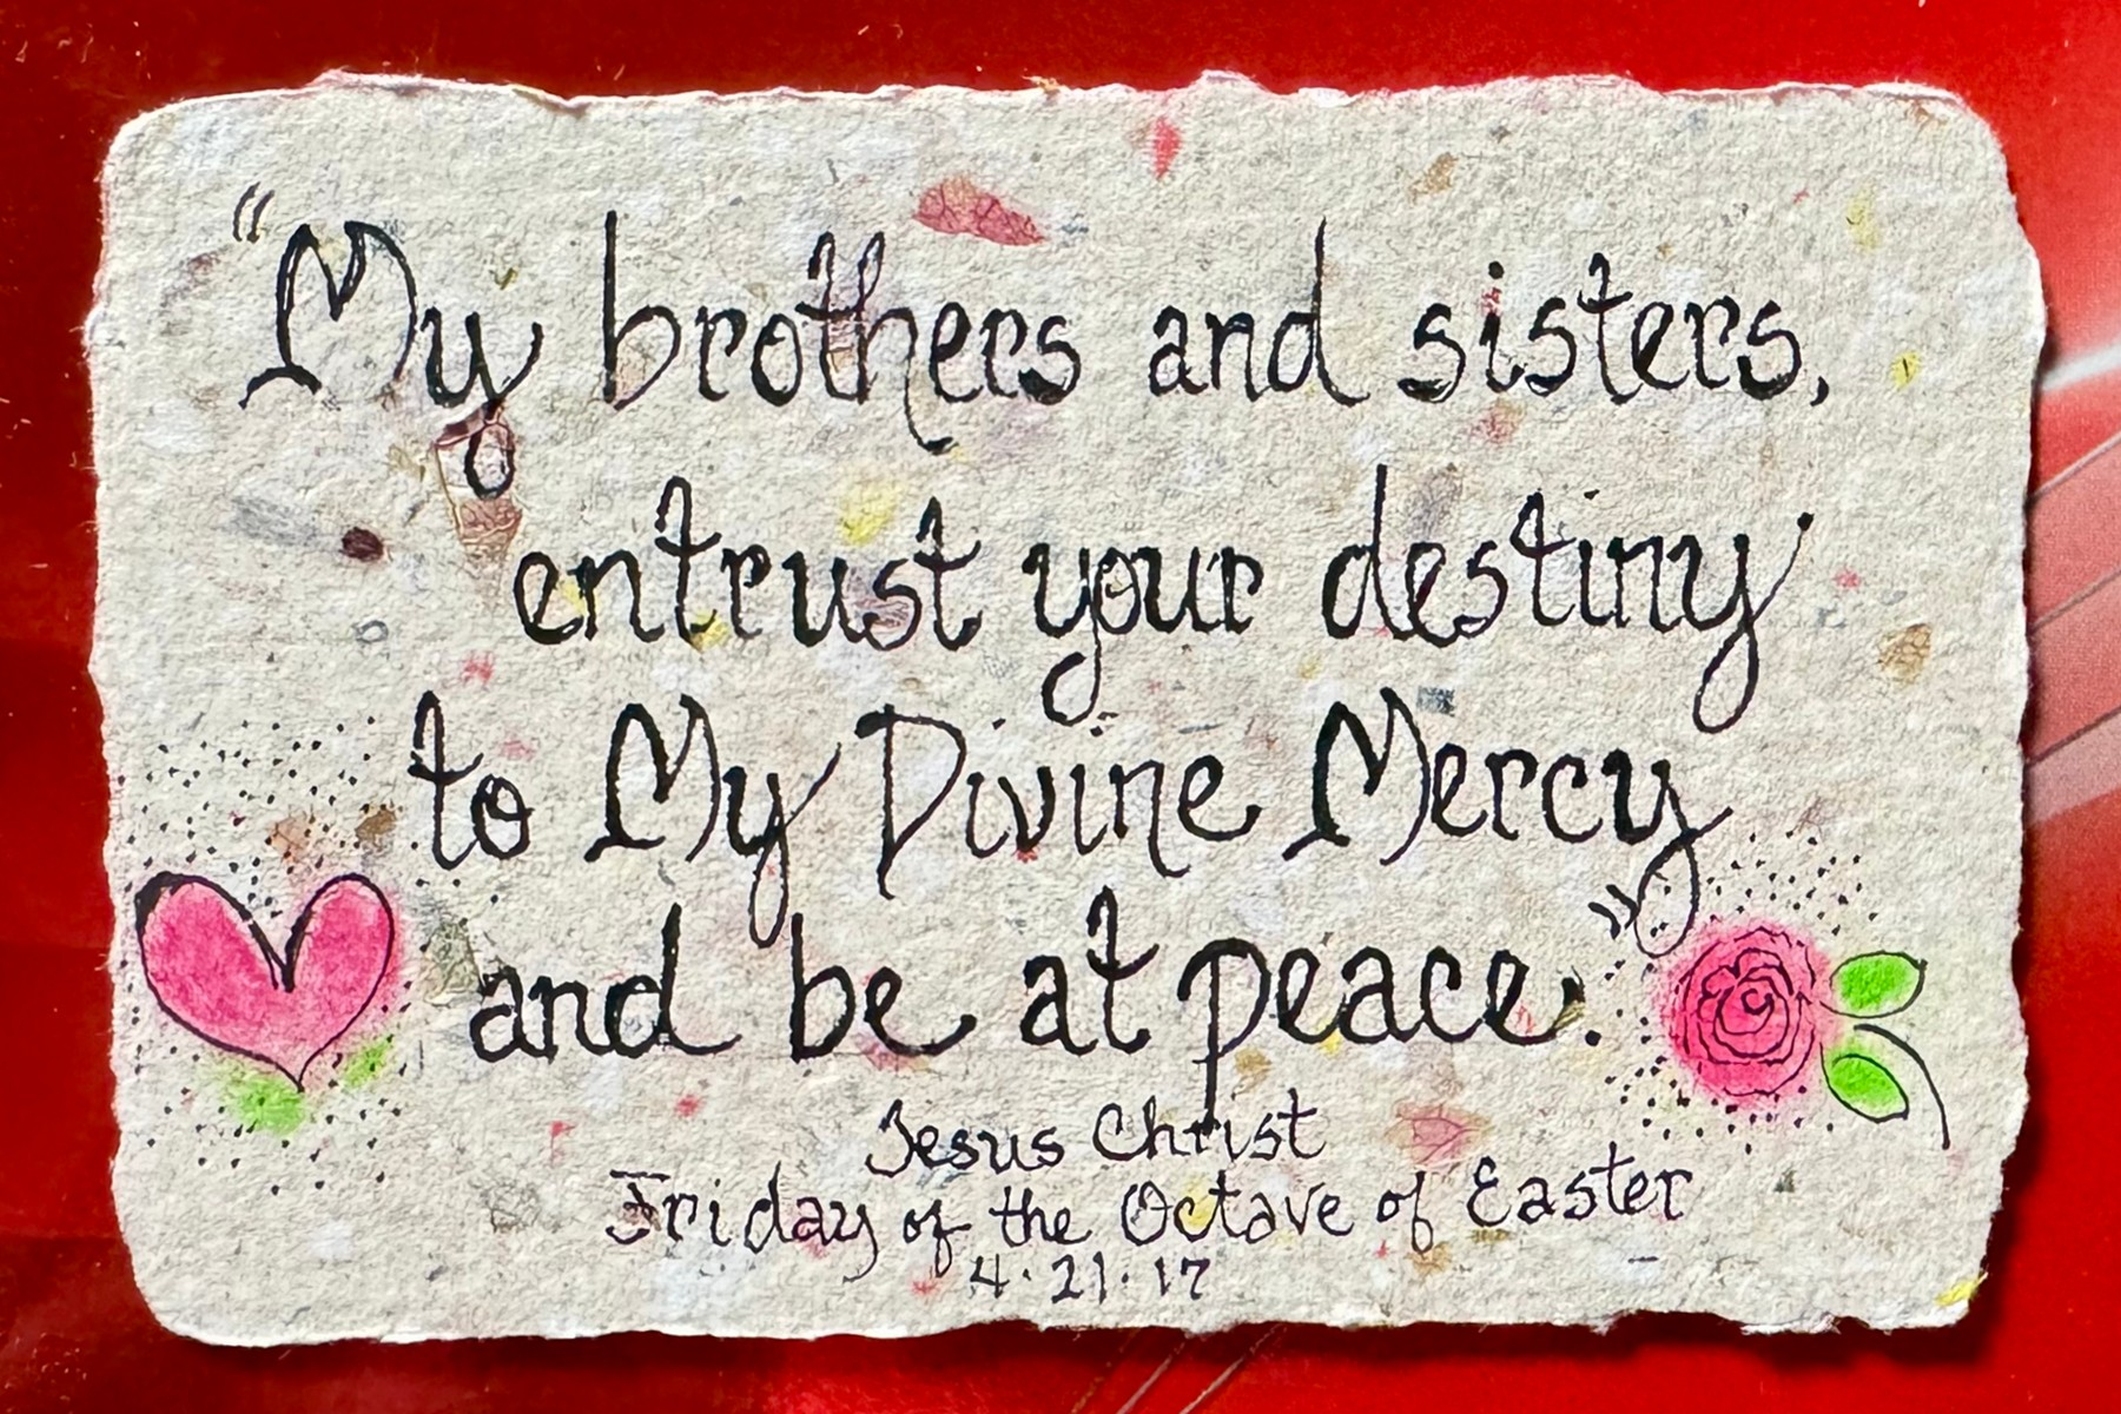 "My brothers and sisters,
entrust your destiny
to My Divine Mercy
and be at peace."
Jesus Christ
Friday of the Octave of Easter
4.21.17